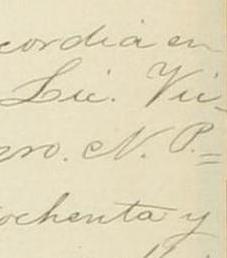 cordia en
Lic. Vic-
ero. N. P. =
ochenta y